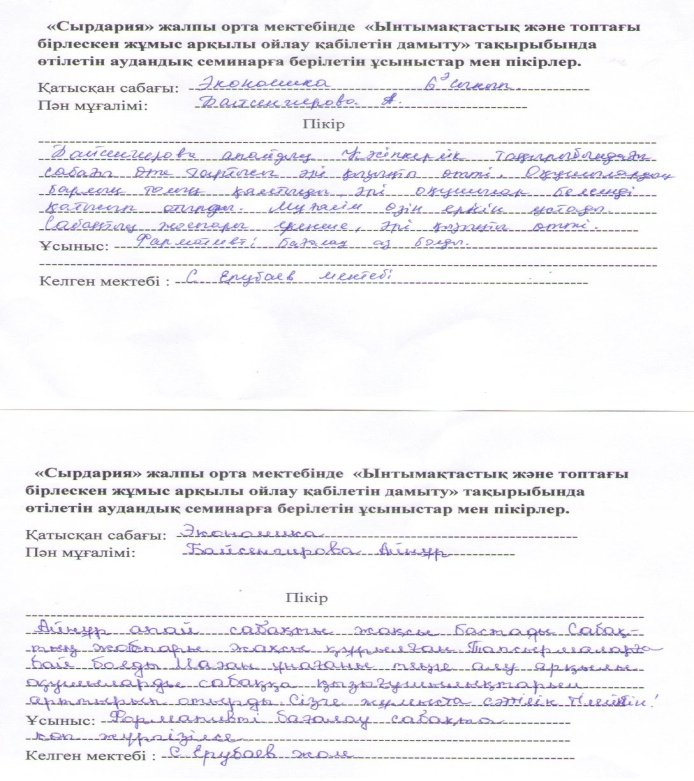 «Сырдария» жалпы орта мектебінде «Ынтымақтастық және топтағы
бірлескен жұмыс арқылы ойлау қабілетін дамыту» тақырыбында
өтілетін аудандық семинарға берілетін ұсыныстар мен пікірлер.
Қатысқан сабағы: Экономика 6 сынып.
Пән мұғалімі: Байсенгирова А.
Пікір
Байсенгирова апайдың Кәсіпкерлік тақырыбындағы
сабағы өте әрі қызықты өтті. Оқушылардың
барлық толық қамтылды, әрі оқушылар белсенді
қатысып отырды. Мұғалім өзін еркін ұстады.
Сабақтың жоспары ерекше, әрі қызықты өтті.
Ұсыныс: Фармативті бағалау аз болды.
Келген мектебі : С Ерубаев мектебі
«Сырдария» жалпы орта мектебінде «Ынтымақтастық және топтағы
бірлескен жұмыс арқылы ойлау қабілетін дамыту» тақырыбында
өтілетін аудандық семинарға берілетін ұсыныстар мен пікірлер.
Қатысқан сабағы: Экономика
Пән мұғалімі: Байсенгирова Айнұр
Пікір
Айнұр апай сабақты жақсы бастады Сабақ-
тың жоспары жақсы құрылған Тапсырмаларға
бай болды Маған ұнағаны теңге алу арқылы
оқушыларды сабаққа қызығушылықтарын
арттырып отырды Сізге жұмыста сәттілік тілеймін!
Ұсыныс: Формативті бағалау сабақта
көп жүргізілсе
Келген мектебі : С Ерубаев жом